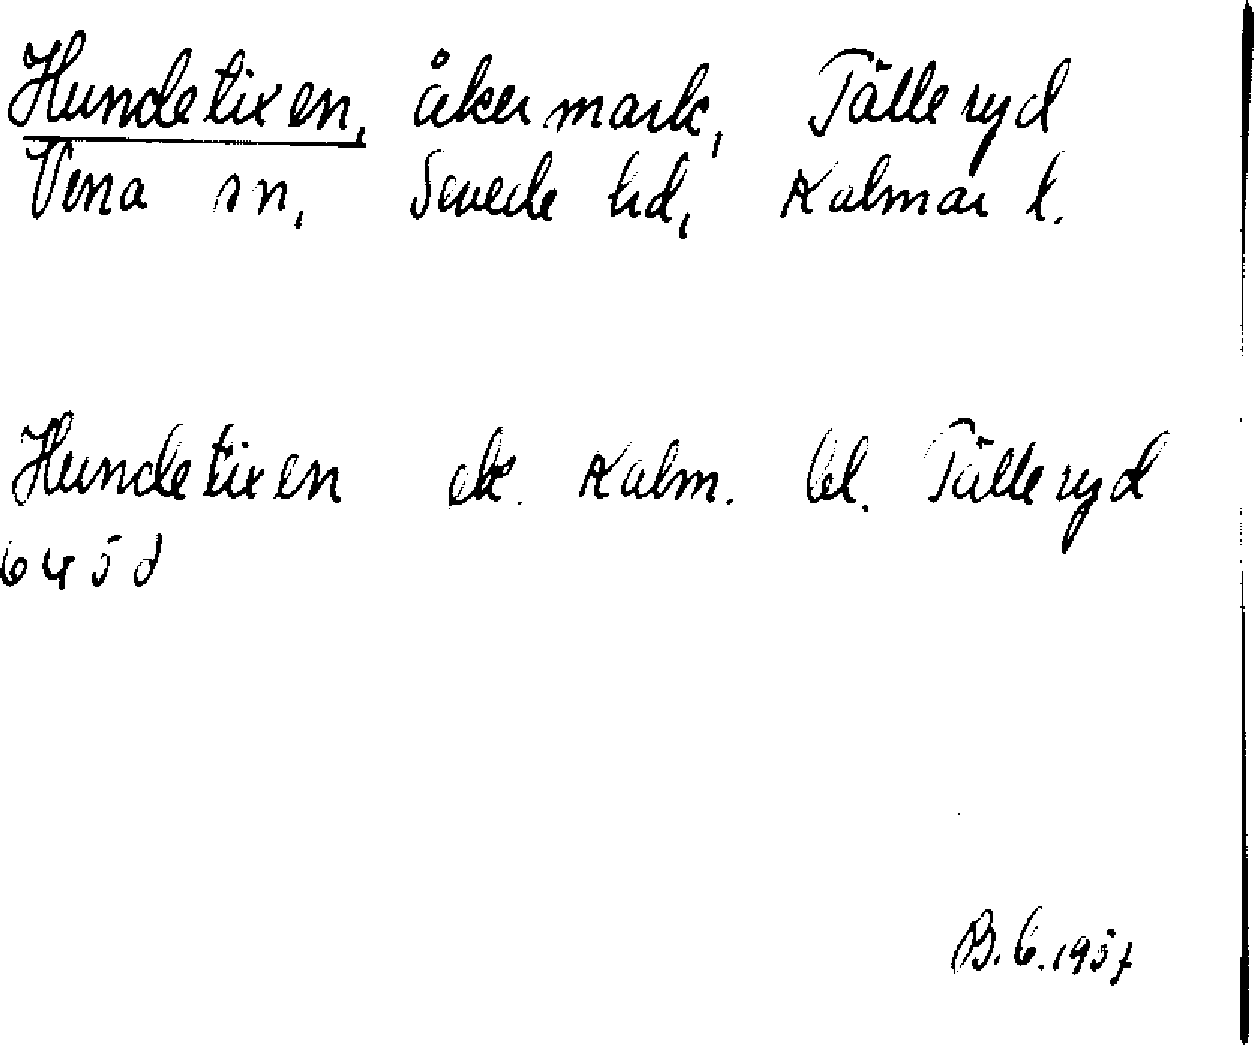 Hundetixen, åkermark, Tälleryd
Vena sn, Sevede hd, Kalmar l.
Hundetixen ek. Kalm. bl. Tälleryd
645d
B.G.1957